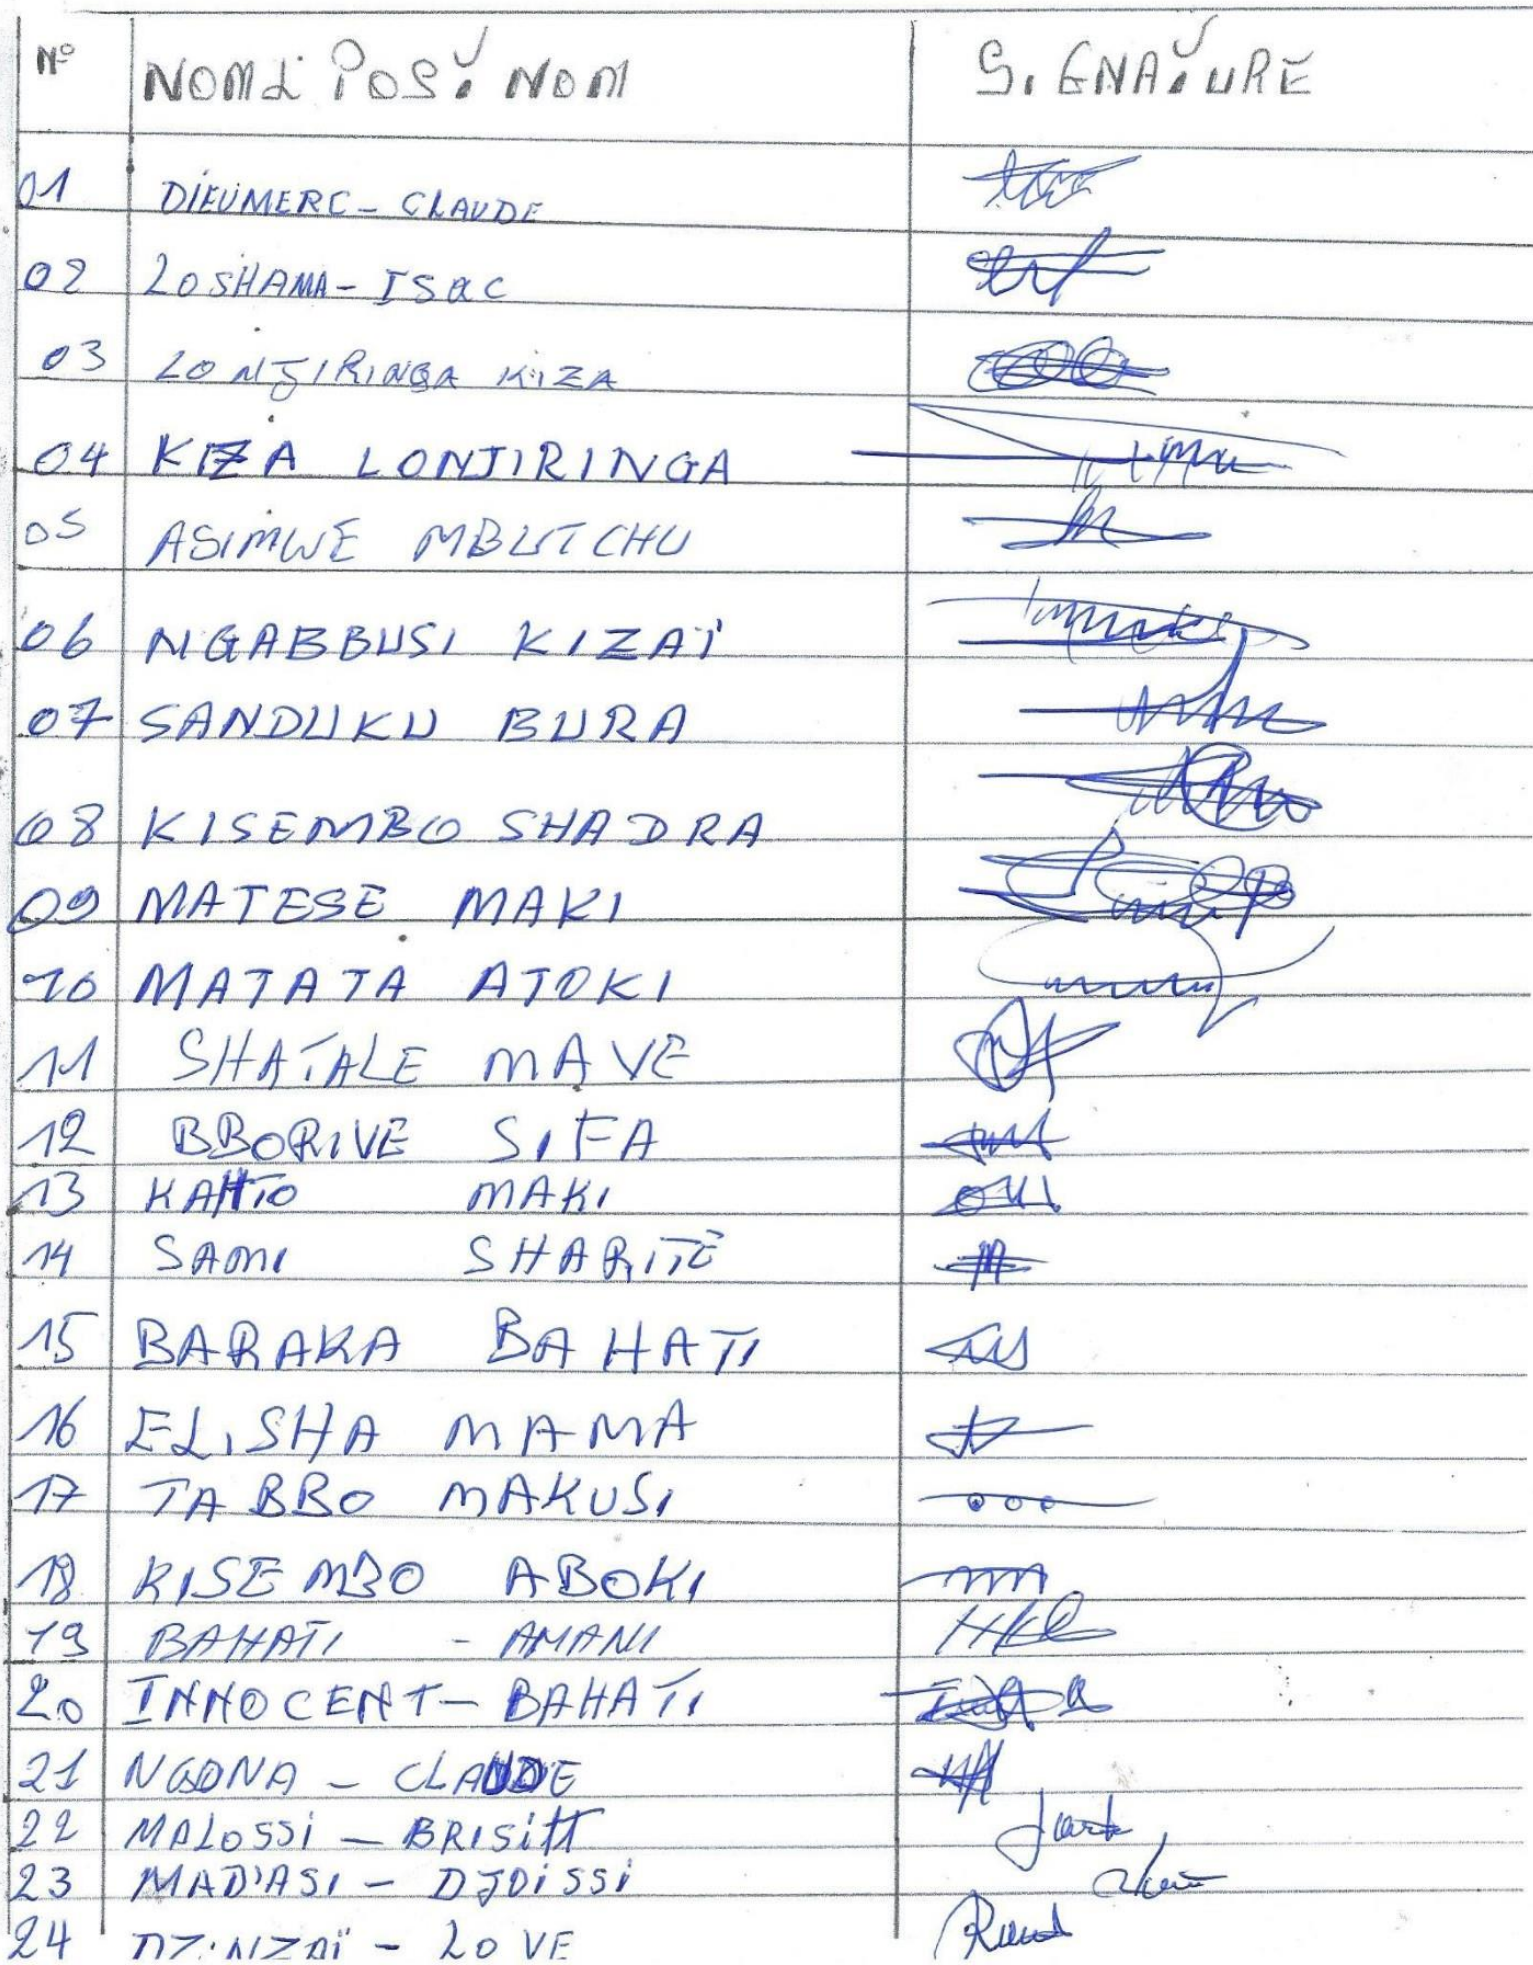 N° NOM & POST NOM SIGNATURE
01 DIEUMERC - CLAUDE
02 LOSHAMA - ISAC
03 LONJIRINGA KIZA
04 KIZA LONJIRINGA
05 ASIMWE MBUTCHU
06 NGABBUSI KIZAÏ
07 SANDUKU BURA
08 KISEMBO SHADRA
09 MATESE MAKI
10 MATATA ATOKI
11 SHATALE MAVE
12 BBORIVE SIFA
13 KAHTO MAKI
14 SAMI SHARITE
15 BARAKA BAHATI
16 ELISHA MAMA
17 TABBO MAKUSI
18 KISEMBO ABOKI
19 BAHATI - AMANI
20 INNOCENT - BAHATI
21 NGONA - CLAUDE
22 MALOSSI - BRISITT
23 MAD'ASI - DJOISSI
24 - LOVE